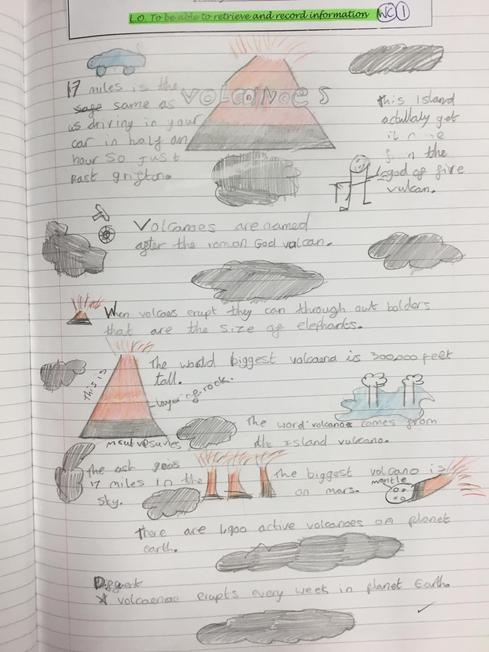 L.O. To be able to retrieve and record information WC 1
VOLCANOES
17 miles is the
sage same as
us driving in your
car in half an
hour so just
past grifton.
this Island
actullaly got
it
the
god of fire
vulcan.
Volcanoes are named
after the roman God valcan.
When volcaos erupt they can through out bolders
that are the size of elephants.
The world biggest volcaond is 300,000 feet
tall.
This is
layer of rock.
ment vesuvies
The word volcanoe comes from
the Island vulcano.
The ash goes
17 miles in the
sky.
The biggest volcano is
on mars.
mantle
There are 1,900 active volcanoes on planet
earth.
A volcaenao erupts every week in planet Earth.